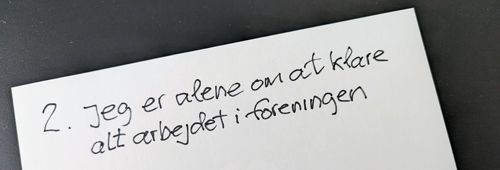 2. Jeg er alene om at klare
alt arbejdet i foreningen